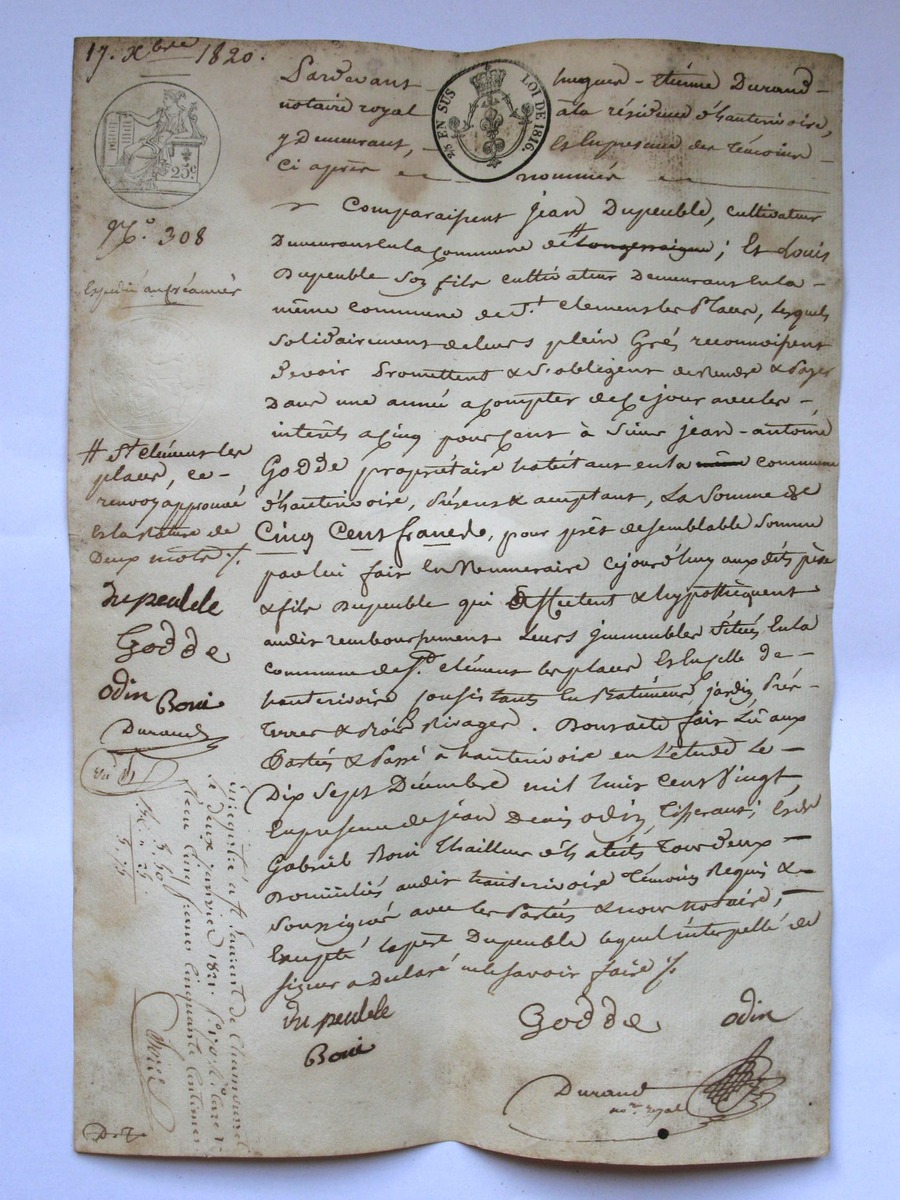 17. Xbre 1820.
Pardevant hugues - étienne Durand -
notaire royal à la résidence d'hauterivoire,
y Demeurant, - Et En presence des témoins -
Ci après nommés
2/5 EN SUS
LOI DE 1816
25c
N.° 308
Expedié au créancier
Comparaissent jean Dupeuble, cultivateur
Demeurant En la Commune de # Longessaigne ; Et Louis
Dupeuble Son fils cultivateur Demeurant En la -
même Commune de St. Clement les Places, Lesquels
Solidairement de leurs plein Grés reconnoissent
Devoir Promettent & S'obligent de Rendre & Payer
Dans une année a Compter de Ce jour avec les -
intérêts a Cinq pour Cent à Sieur jean - antoine
Godde propriétaire habitant en la même commune
d'hauterivoire, Présent & acceptant, La Somme de
Cinq Cent francs, pour prêt de semblable Somme
par lui fait En Numeraire Cejourd'huy aux dits père
& fils Dupeuble qui affectent & hypothèquent
audit remboursement Leurs jmmeubles Situés En la
Commune de St. Clément les places Et En Celle de -
hauterivoire Consistants En Batiments, jardin Prés -
Terres & Bois Rivages. Dont acte fait Lû aux
Partiés & Passé à hauterivoire en L'étude Le -
Dix Sept Décembre mil huit Cent Vingt
En presence de jean Denis odin, Tisserant, Et de
Gabriel Boni thailleur d'habits Tous deux -
Domiciliés audit hauterivoire Témoins Requis & -
Soussignés avec les Partiés & nous notaire, -
Excepté le père Dupeuble lequel interpellé de
signer a Declaré ne le Savoir faire ./.
# St. clément les
places, ce -
renvoy approuvé
Et la rature de
Deux mots ./.
dupeuble
Godde
odin Boni
Durand
5. 50
55
Enregistré à St. Laurent de Chamousset
le deux janvier 1821.
Reçu Cinq francs Cinquante Centimes
dupeuble
Godde odin
Boni
Durand
nore. royal